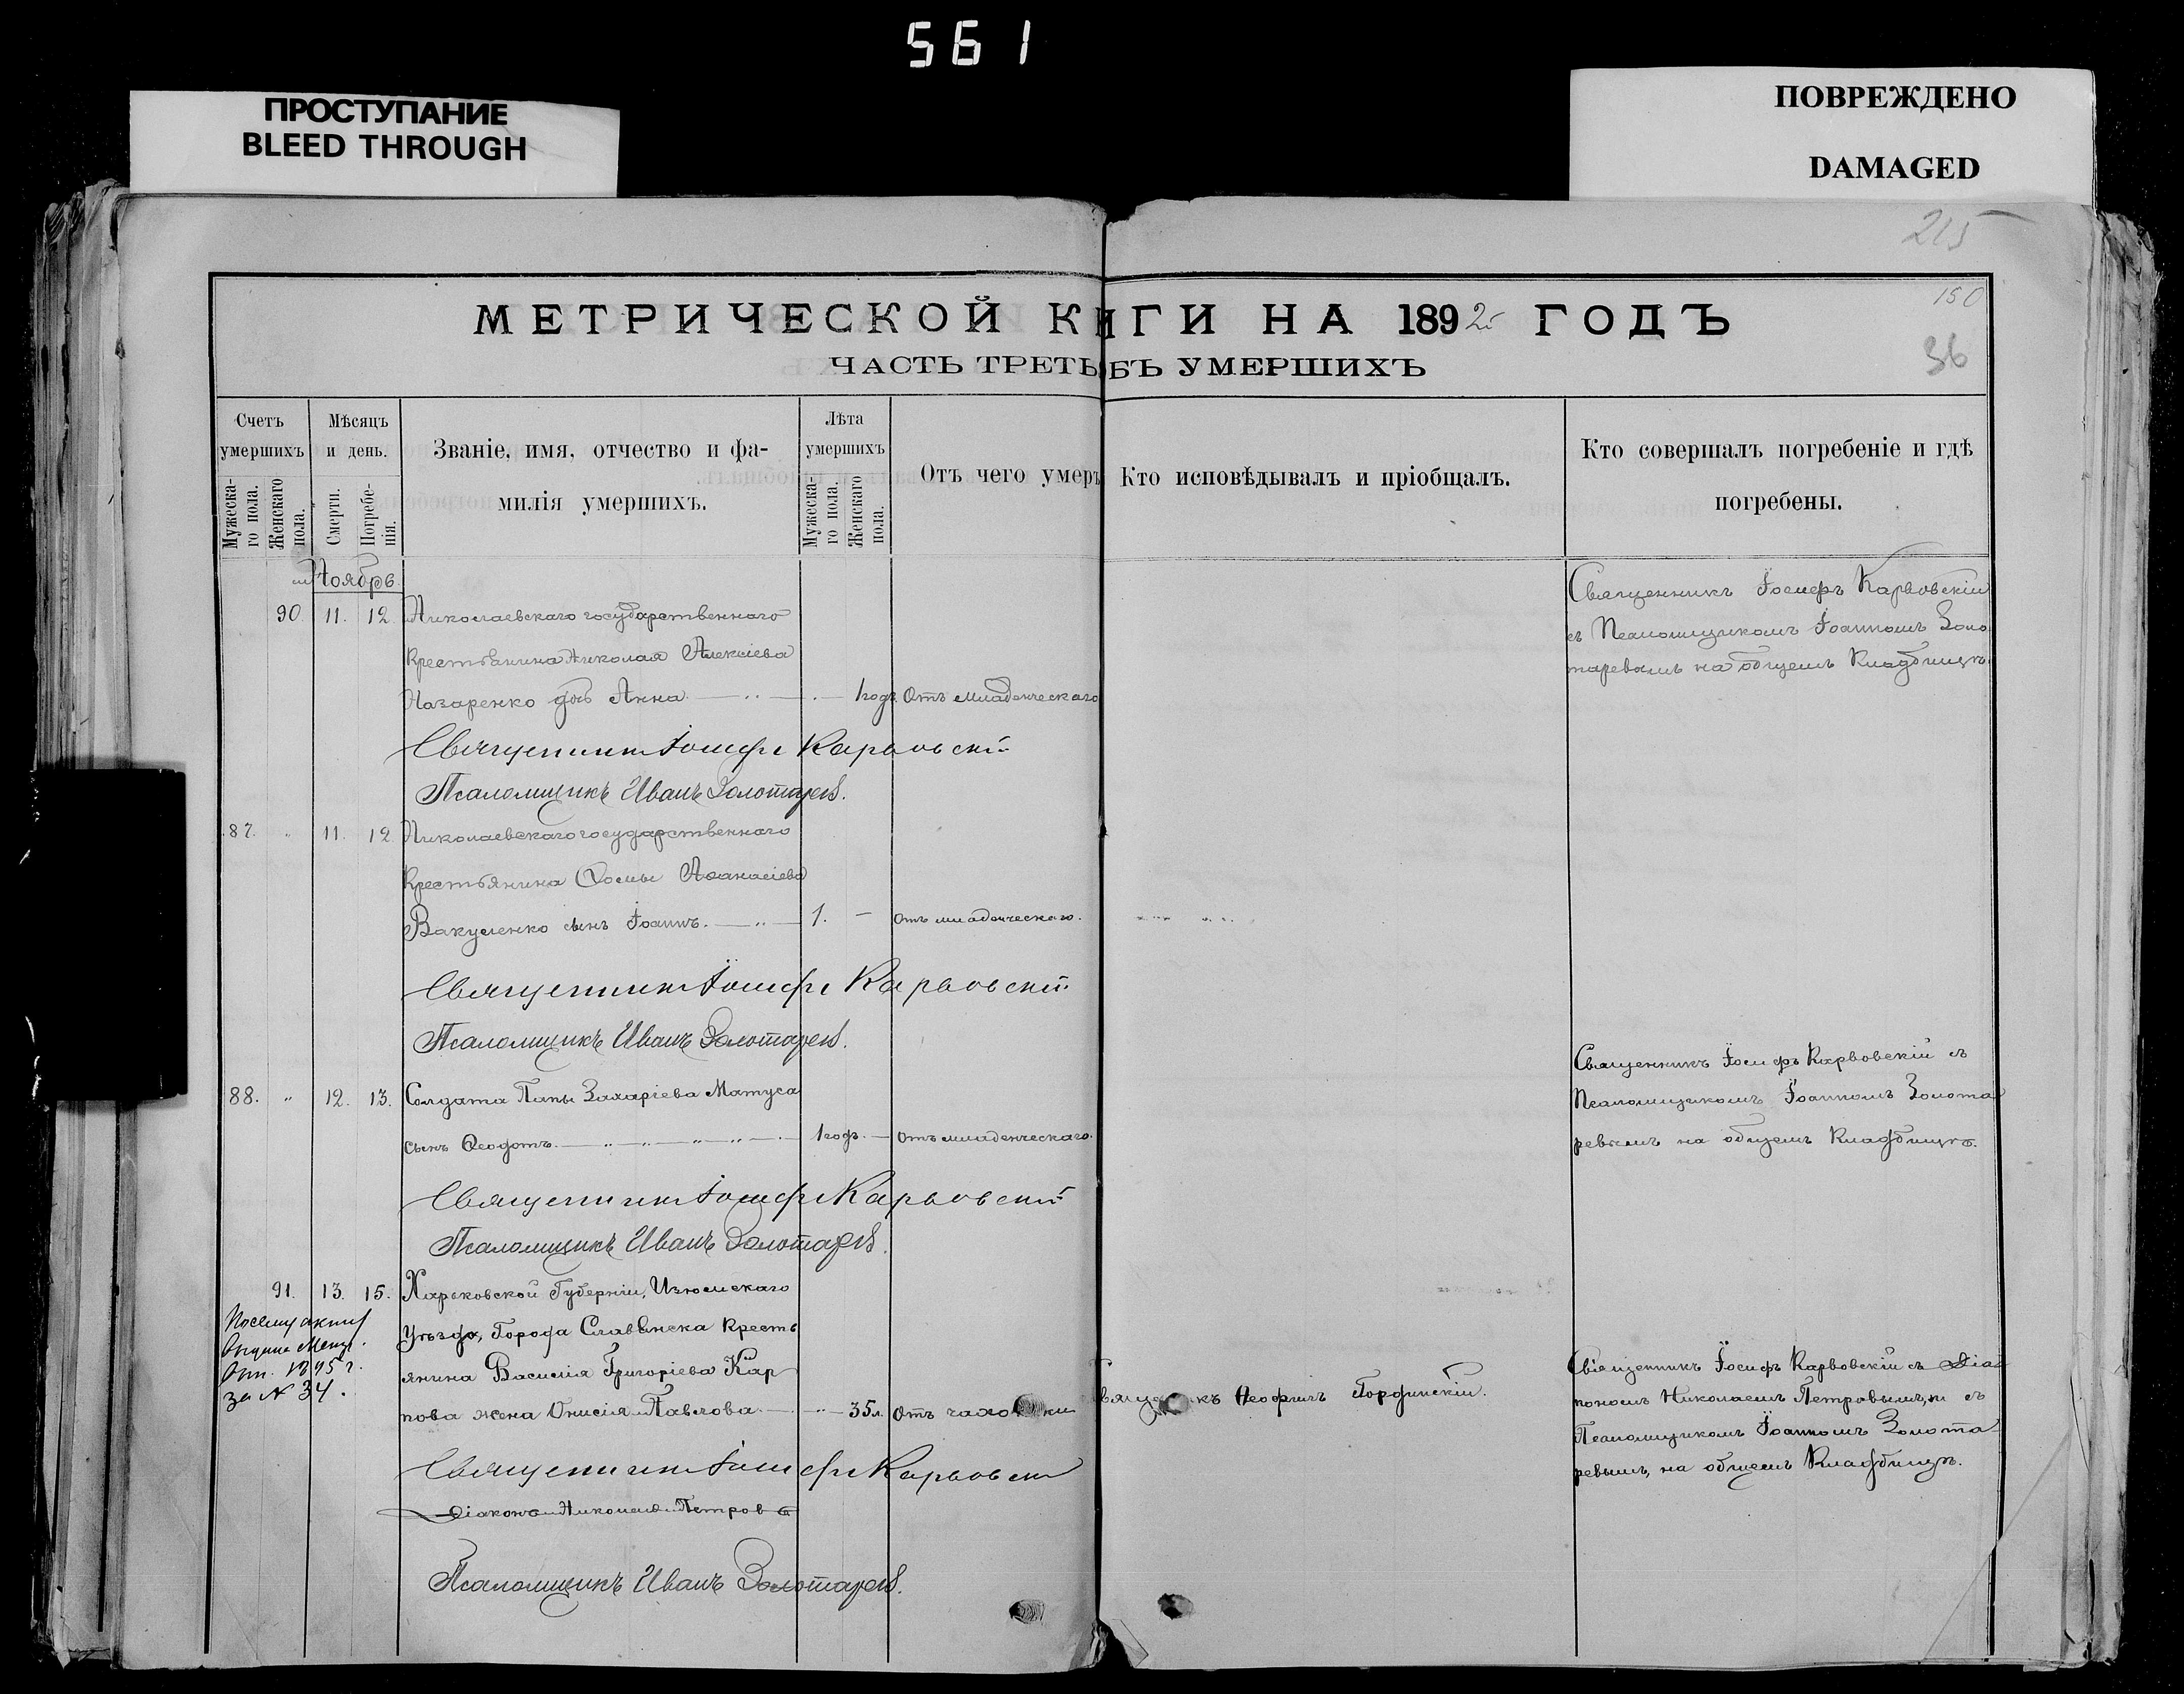 561
ПРОСТУПАНИЕ
BLEED THROUGH
ПОВРЕЖДЕНО
DAMAGED
215
150
36
МЕТРИЧЕСКОЙ КНГИ НА 1892 ГОДЪ
ЧАСТЬ ТРЕТЬ БЪ УМЕРШИХЪ
Счетъ умершихъ
Мужеска-го пола.
Женскаго пола.
Мѣсяцъ и день.
Смерти.
Погребе-нія.
Званіе, имя, отчество и фа-
милія умершихъ.
Лѣта умершихъ
Мужеска-го пола.
Женскаго пола.
Отъ чего умеръ
Кто исповѣдывалъ и пріобщалъ.
Кто совершалъ погребеніе и гдѣ
погребены.
Ноябрь
90 11. 12 Николаевскаго государственнаго
Крестьянина Николая Алексіева
Назаренко дочь Анна 1 годъ Отъ младенческаго
Священникъ Іосифъ Карвовскій
съ Псаломщикомъ Іоанномъ Золо
таревымъ на общемъ Кладбищѣ.
Священникъ Іосифъ Карвовскій
Псаломщикъ Иванъ Золотаревъ.
87. " 11. 12. Николаевскаго государственнаго
Крестьянина Ѳомы Аѳанасіева
Вакуленко сынъ Іоаннъ. 1. – отъ младенческаго.
Священникъ Іосифъ Карвовскій
Псаломщикъ Иванъ Золотаревъ.
88. " 12. 13. Солдата Захаріева Матуса
сынъ Ѳеодотъ. 1 годъ. – Отъ младенческаго.
Священникъ Іосифъ Карвовскій съ
Псаломщикомъ Іоанномъ Золота
ревымъ на общемъ Кладбищѣ.
Священникъ Іосифъ Карвовскій
Псаломщикъ Иванъ Золотаревъ.
91. 13. 15. Харьковской Губерніи, Изюмскаго
Уѣзда, Города Славянска Кресть
янина Василія Григоріева Кар
пова жена Онисія Павлова " 35 л. Отъ
По сему акту
1895 г.
за № 34.
Неофитъ Гординскій.
Священникъ Іосифъ Карвовскій съ Діа
кономъ Николаемъ Петровымъ, и съ
Псаломщикомъ Іоанномъ Золота
ревымъ, на общемъ Кладбищѣ.
Священникъ Іосифъ Карвовскій
Діаконъ Николай Петровъ
Псаломщикъ Иванъ Золотаревъ.